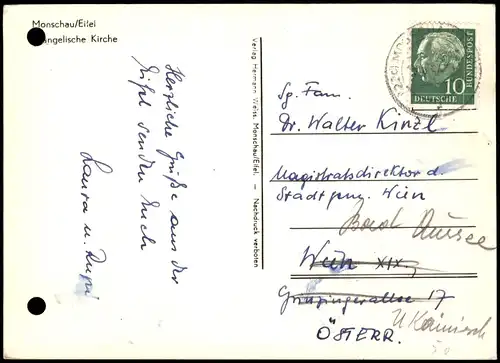 Monschau/Eifel
angelische Kirche
Herzliche Grüße aus der
Eifel senden Euch
Laura u. Rupi
Verlag Hermann Weiss, Monschau/Eifel. — Nachdruck verboten
10
DEUTSCHE
BUNDESPOST
Sg. Fam.
Dr. Walter Kinzl
Magistratsdirektor d.
Stadt Wien
Bad Aussee
Wien XIX,
Grinzingerallee 17
ÖSTERR.